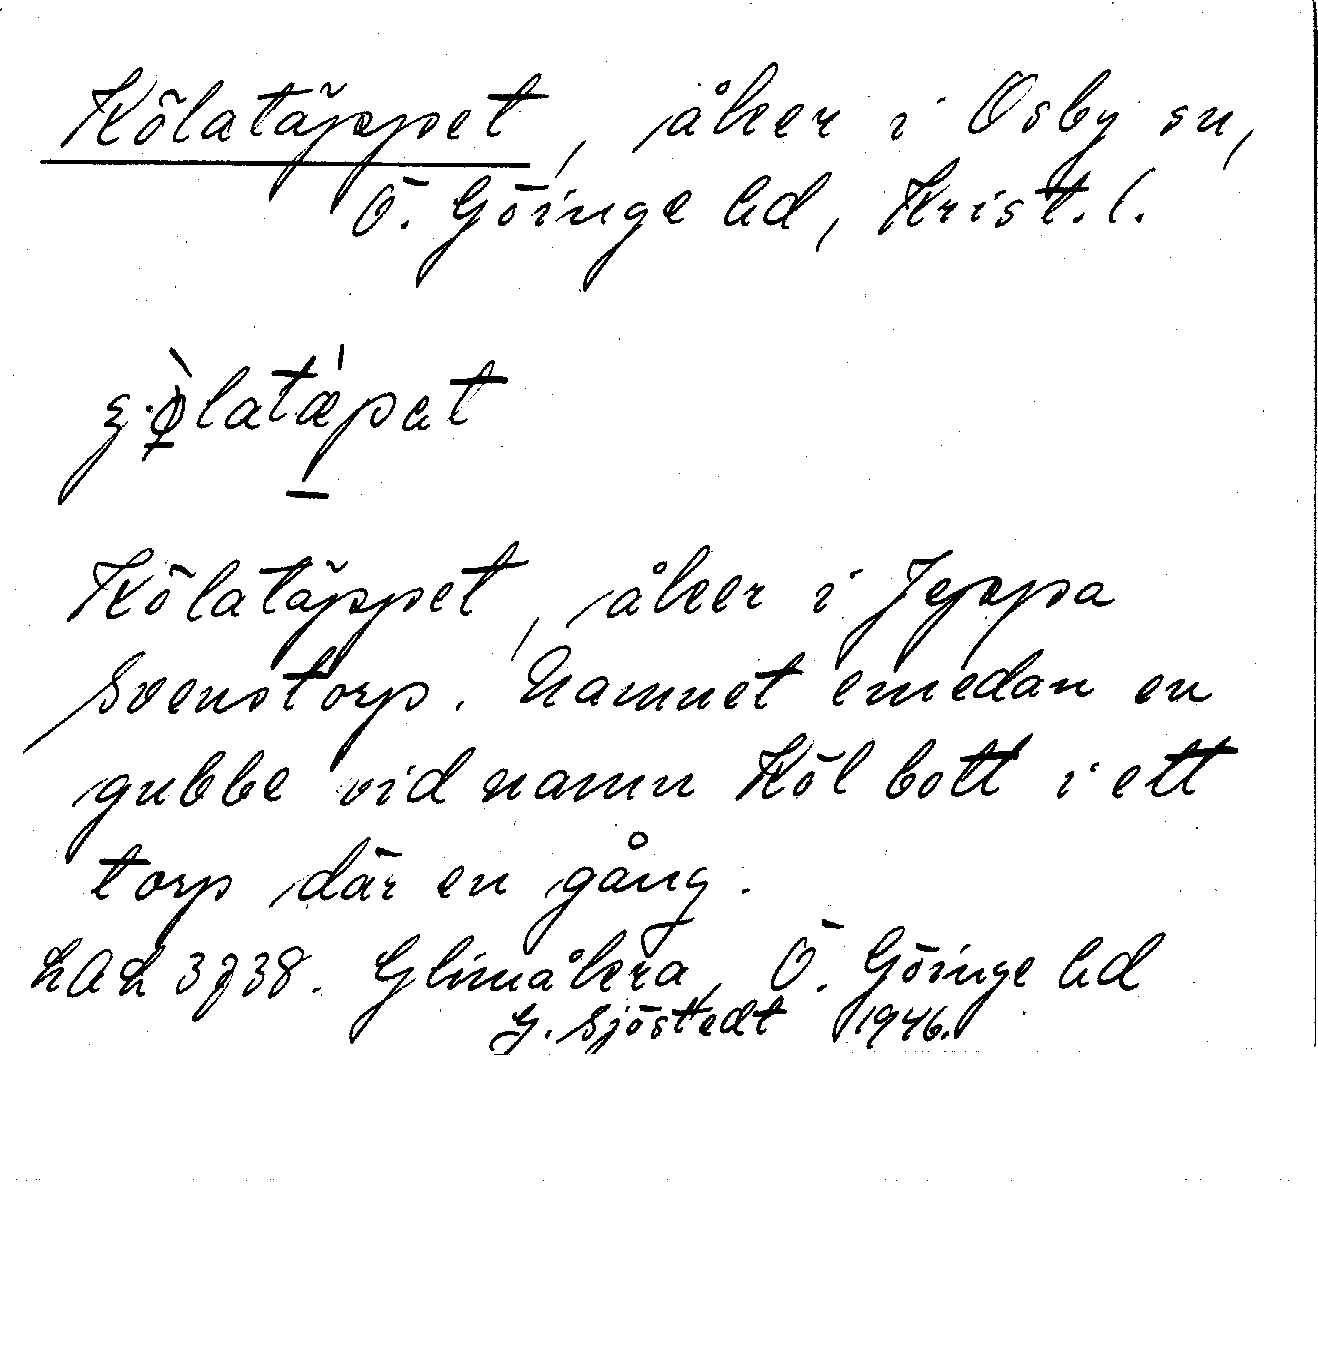 Kölatäppet, åker i Osby sn,
Ö. Göinge hd, Krist. l.
Kölatäppet, åker i Jeppa
Svenstorp. Namnet emedan en
gubbe vid namn Köl bott i ett
torp där en gång.
LAL 3738. Glimåkra, Ö. Göinge hd
G. Sjöstedt 1946.